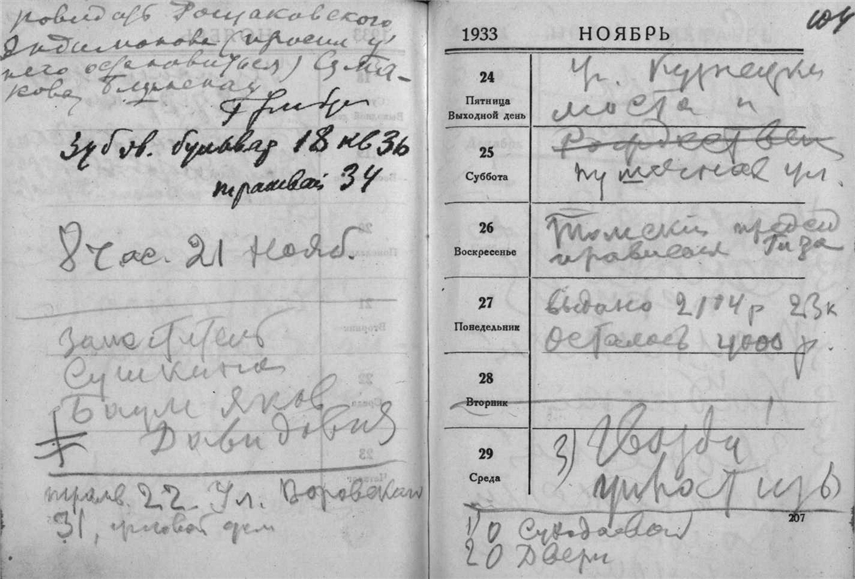 повидать Рощаковского
Яндиманова (просил у
него остановиться)
кова
Зубов. бульвар 18 кв 36
трамвай 34
8 час. 21 Нояб.
Заместитель
Сушкина
Баум Яков
Давидович
трамв. 22. Ул. Воровского
31, угловой дом
1933 НОЯБРЬ
104
24
Пятница
Выходной день
уг. Кузнецки
моста и
25
Суббота
Рождествен
пушечная ул.
26
Воскресенье
Томский председ
правления Гиза
27
Понедельник
выдано 2104 р 23 к
осталось 4000 р.
28
Вторник
29
Среда
3) Гвозди
упростить
207
1) О
2 О Двери